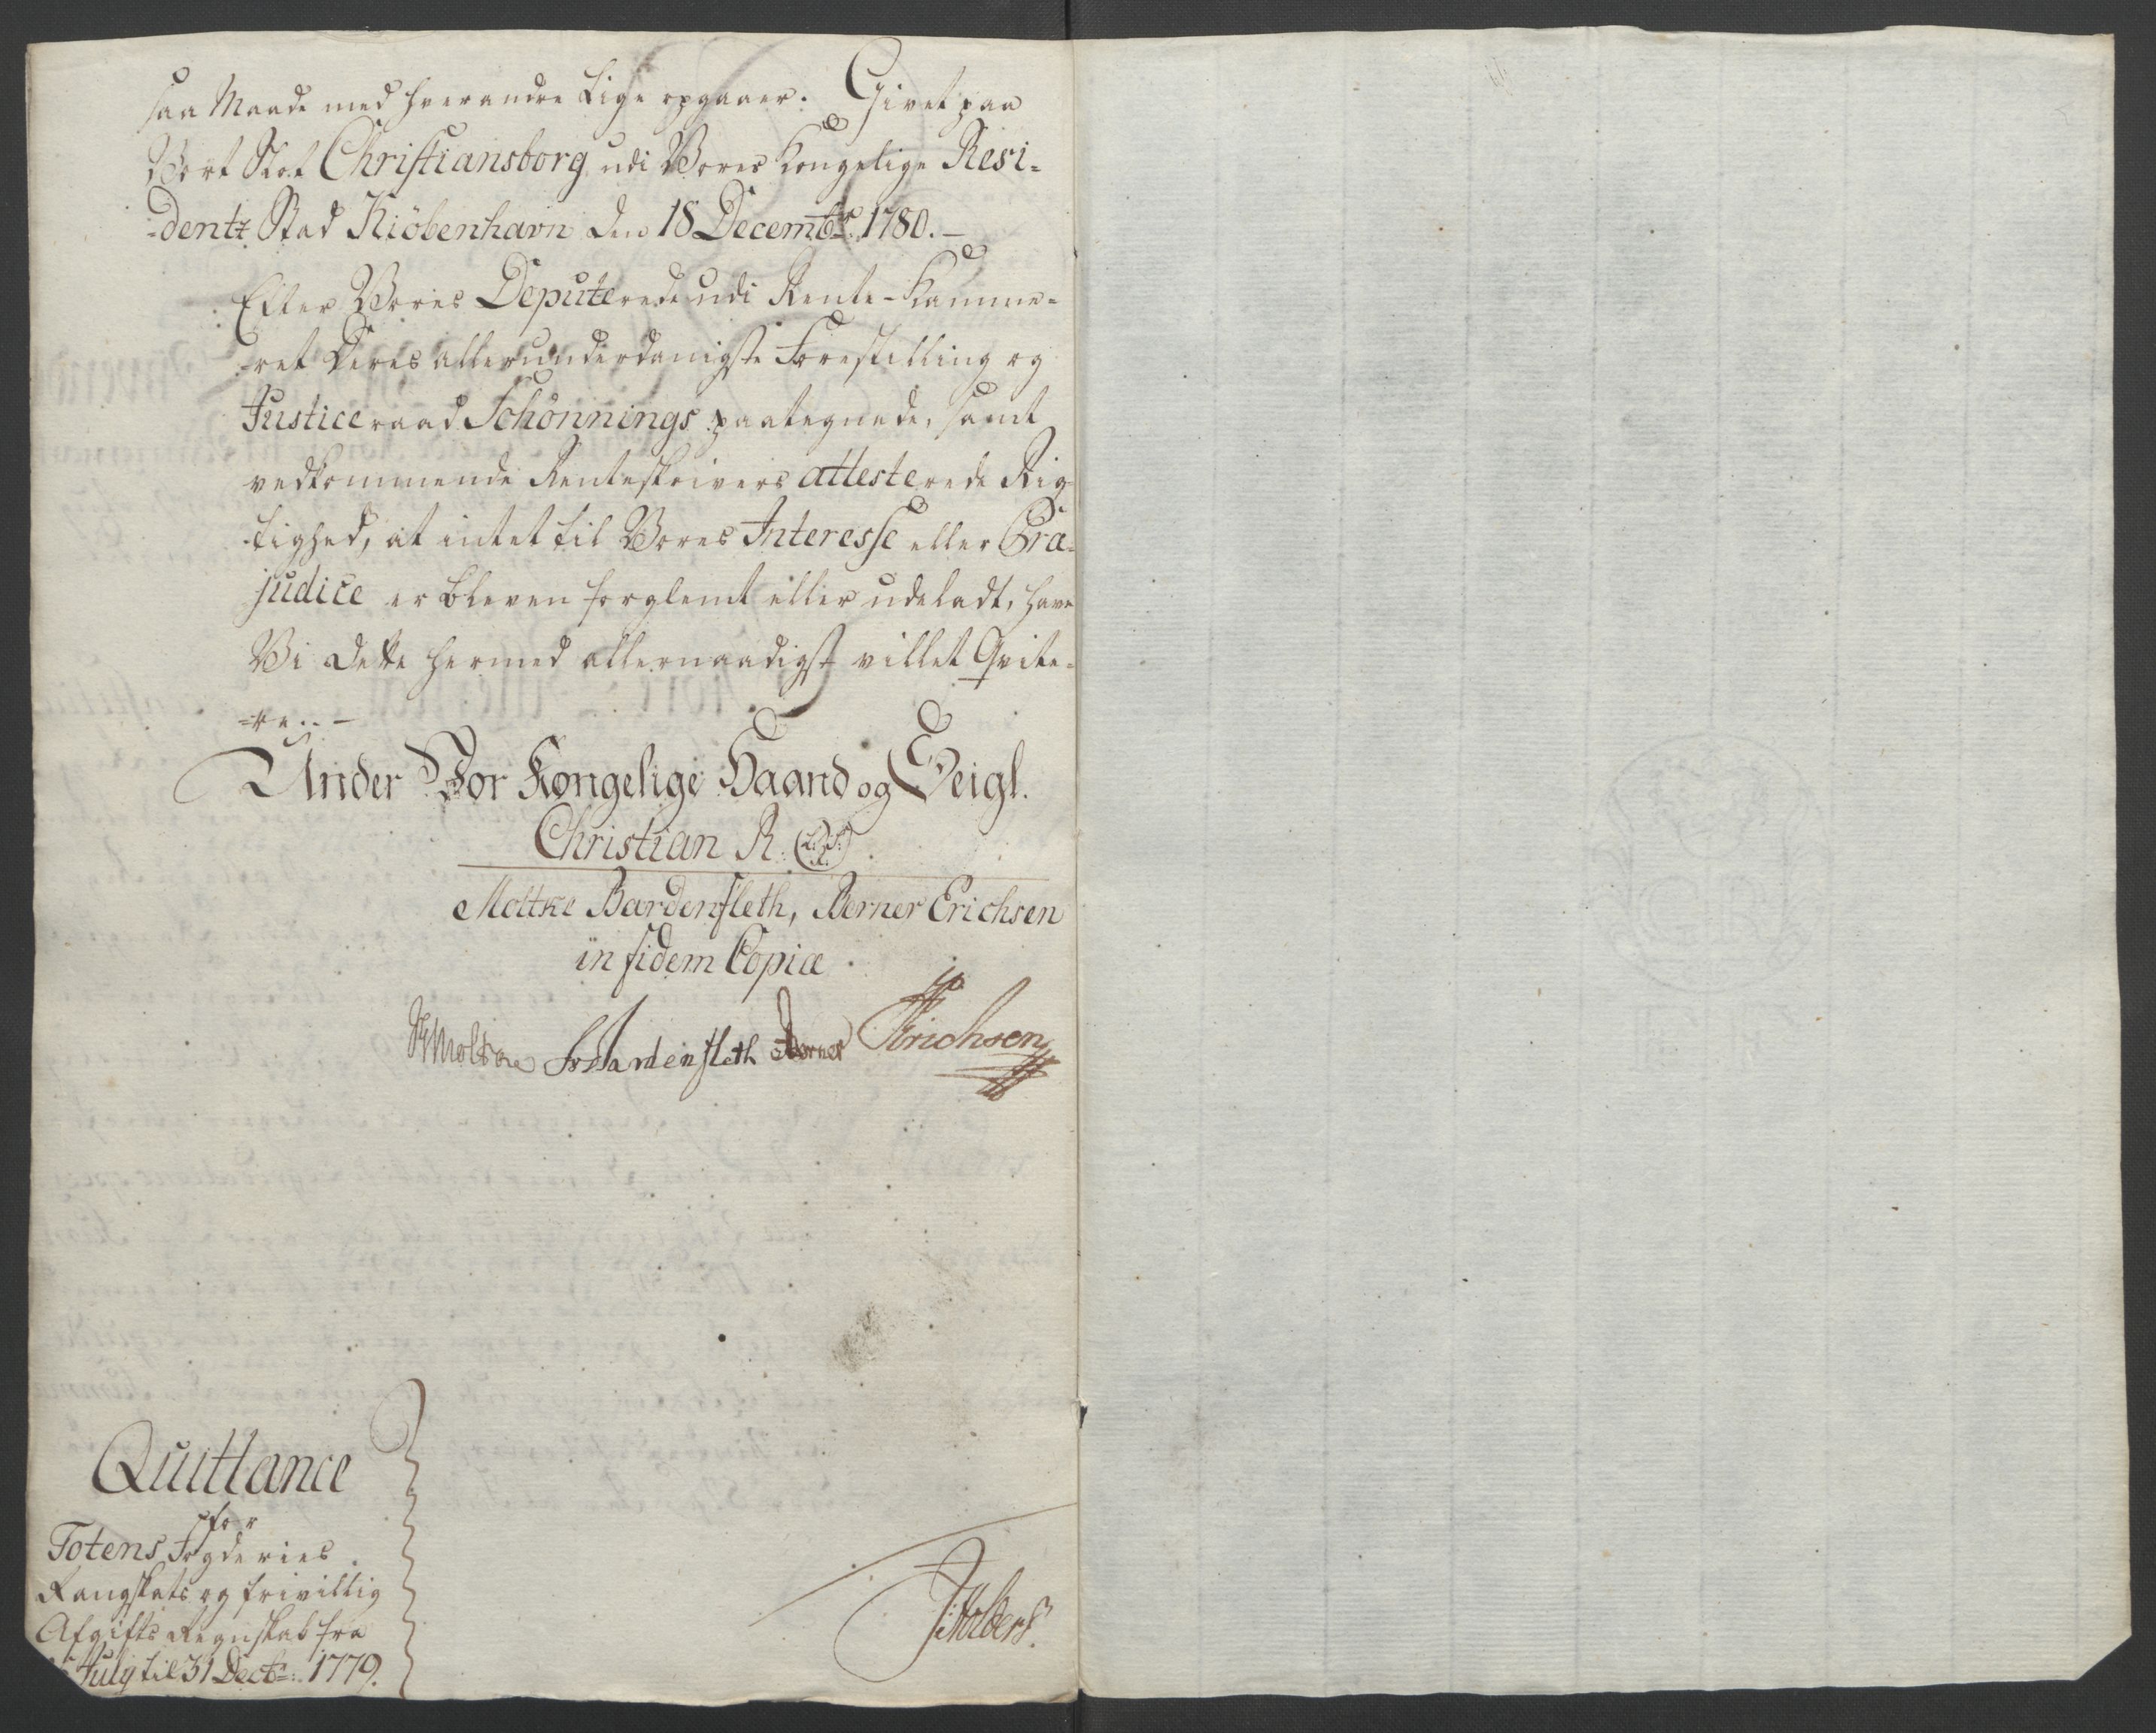 saa Maade med hverandre Lige opgaaer. Givet paa
Vort Slot Christiansborg udi Vores Kongelige Resi-
-dentz Stad Kiöbenhavn den 18 Decembr. 1780. –
Efter Vores Deputerede udi Rente-Kamme-
-ret Deres allerunderdanigste Forestilling og
Justiceraad Schönnings paategnede, samt
vedkommende Renteskrivers attesterede Rig-
-tighed, at intet til Vores Interesse eller Præ-
judice er bleven forglemt eller udeladt, have
Vi dette hermed allernaadigst villet Qvite-
-re. –
Under Vor Kongelige Haand og Seigl.
Christian R. (L.S.)
Moltke Bardenfleth, Berner Erichsen
in fidem Copiæ
Moltke Bardenfleth Berner Erichsen
Quittance
for
Totens Fogderies
Rangskats og frivillig
Afgifts Regnskab fra
July til 31 Decbr: 1779.